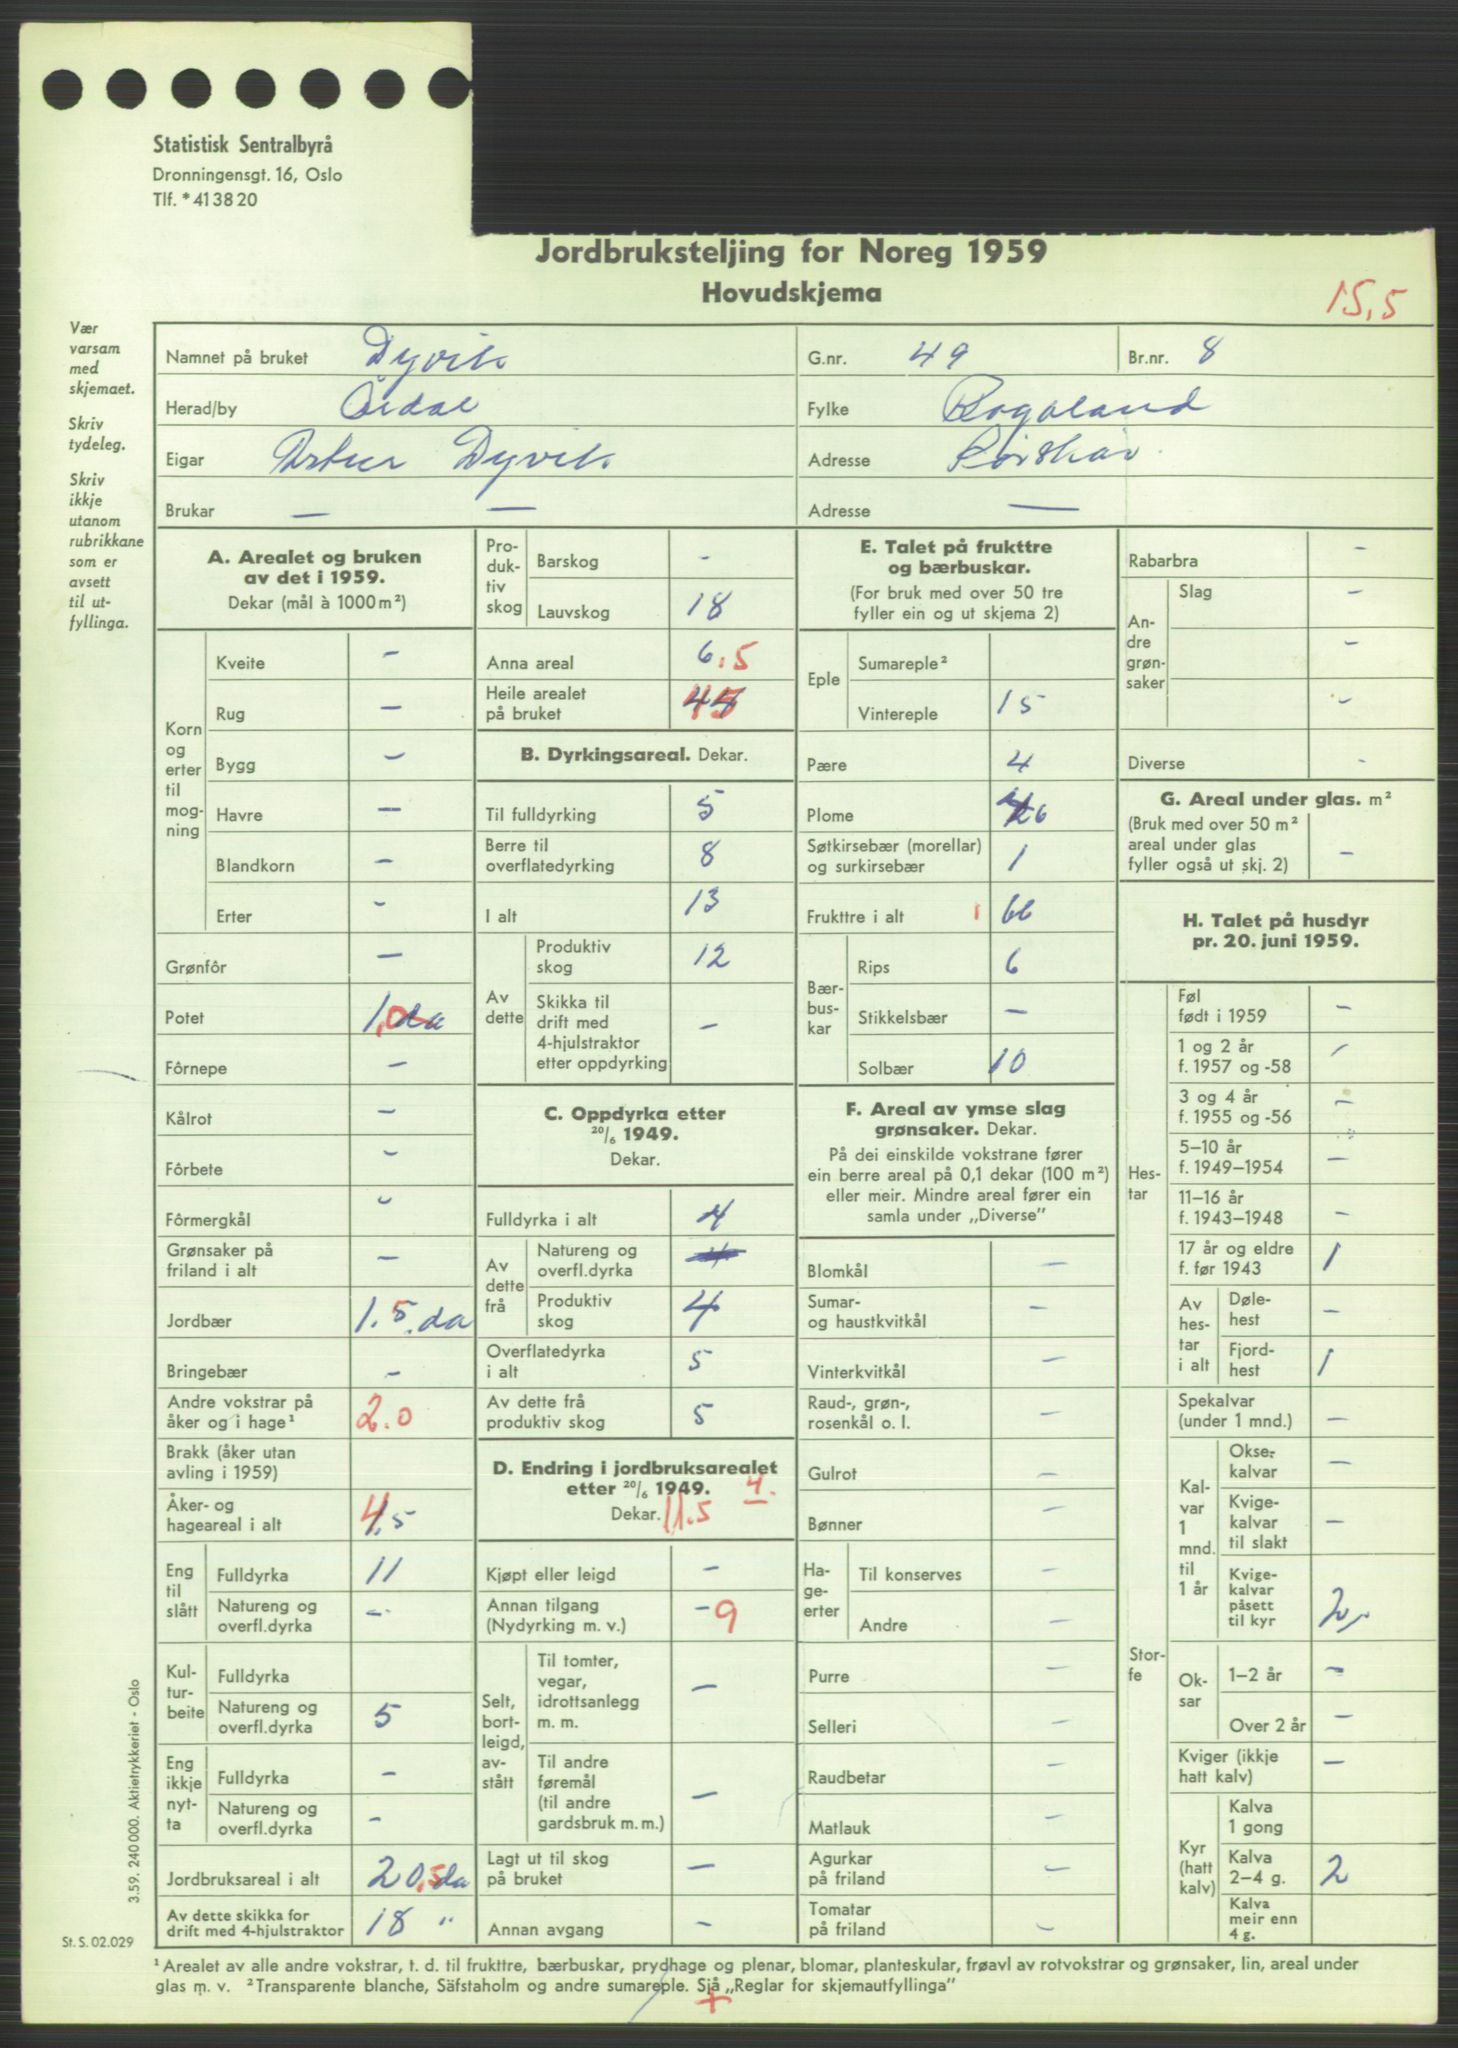 Statistisk Sentralbyrå
Dronningensgt. 16, Oslo
Tlf. * 41 38 20
Jordbruksteljing for Noreg 1959
Hovudskjema
15,5
Vær
varsam
med
skjemaet.
Skriv
tydeleg.
Skriv
ikkje
utanom
rubrikkane
som er
avsett
til ut-
fyllinga.
Namnet på bruket Dyvik G.nr. 49 Br.nr. 8
Herad/by Årdal Fylke Rogaland
Eigar Dyvik Adresse
Brukar — — Adresse —
A. Arealet og bruken
av det i 1959.
Dekar (mål à 1000 m²)
Korn og erter til mog-ning
Kveite –
Rug –
Bygg –
Havre –
Blandkorn –
Erter –
Grønfôr –
Potet 1,0 da
Fôrnepe –
Kålrot –
Fôrbete –
Fôrmergkål –
Grønsaker på
friland i alt –
Jordbær 1.5. da
Bringebær –
Andre vokstrar på
åker og i hage¹ 2.0
Brakk (åker utan
avling i 1959)
Åker- og
hageareal i alt 4,5
Eng til slått
Fulldyrka 11
Natureng og
overfl.dyrka –
Kul-tur-beite
Fulldyrka
Natureng og
overfl.dyrka 5
Eng ikkje nyt-ta
Fulldyrka –
Natureng og
overfl.dyrka –
Jordbruksareal i alt 20,5 da
Av dette skikka for
drift med 4-hjulstraktor 18 "
Pro-duk-tiv skog
Barskog –
Lauvskog 18
Anna areal 6.5
Heile arealet
på bruket 45
B. Dyrkingsareal. Dekar.
Til fulldyrking 5
Berre til
overflatedyrking 8
I alt 13
Av dette
Produktiv
skog 12
Skikka til
drift med
4-hjulstraktor
etter oppdyrking –
C. Oppdyrka etter
20/6 1949.
Dekar.
Fulldyrka i alt 4
Av dette frå
Natureng og
overfl.dyrka
Produktiv
skog 4
Overflatedyrka
i alt 5
Av dette frå
produktiv skog 5
D. Endring i jordbruksarealet
etter 20/6 1949. 4.
Dekar. 11.5
Kjøpt eller leigd –
Annan tilgang
(Nydyrking m. v.) – 9
Selt, bort-leigd, av-stått
Til tomter,
vegar,
idrottsanlegg
m. m. –
Til andre
føremål
(til andre
gardsbruk m. m.) –
Lagt ut til skog
på bruket –
Annan avgang –
E. Talet på frukttre
og bærbuskar.
(For bruk med over 50 tre
fyller ein og ut skjema 2)
Eple
Sumareple²
Vintereple 15
Pære 4
Plome 46
Søtkirsebær (morellar)
og surkirsebær 1
Frukttre i alt 66
Bær-bus-kar
Rips 6
Stikkelsbær –
Solbær 10
F. Areal av ymse slag
grønsaker. Dekar.
På dei einskilde vokstrane fører
ein berre areal på 0,1 dekar (100 m²)
eller meir. Mindre areal fører ein
samla under „Diverse”
Blomkål –
Sumar-
og haustkvitkål –
Vinterkvitkål –
Raud-, grøn-,
rosenkål o. l. –
Gulrot –
Bønner –
Ha-ge-erter
Til konserves –
Andre –
Purre –
Selleri –
Raudbetar –
Matlauk –
Agurkar
på friland –
Tomatar
på friland –
Rabarbra –
An-dre grøn-saker
Slag –
–
–
Diverse -
G. Areal under glas. m²
(Bruk med over 50 m²
areal under glas
fyller også ut skj. 2) –
H. Talet på husdyr
pr. 20. juni 1959.
Hes-tar
Føl
født i 1959 –
1 og 2 år
f. 1957 og -58 –
3 og 4 år
f. 1955 og -56 –
5–10 år
f. 1949–1954 –
11–16 år
f. 1943–1948 –
17 år og eldre
f. før 1943 1
Av hes-tar i alt
Døle-
hest –
Fjord-
hest 1
Stor-fe
Spekalvar
(under 1 mnd.) –
Kal-var 1 mnd. til 1 år
Okse-
kalvar –
Kvige-
kalvar
til slakt –
Kvige-
kalvar
påsett
til kyr 2
Ok-sar
1–2 år –
Over 2 år –
Kviger (ikkje
hatt kalv) –
Kyr (hatt kalv)
Kalva
1 gong
Kalva
2–4 g. 2
Kalva
meir enn
4 g.
3.59. 240 000. Aktietrykkeriet - Oslo
St. S. 02.029
¹ Arealet av alle andre vokstrar, t. d. til frukttre, bærbuskar, prydhage og plenar, blomar, planteskular, frøavl av rotvokstrar og grønsaker, lin, areal under
glas m. v. ² Transparente blanche, Säfstaholm og andre sumareple. Sjå „Reglar for skjemautfyllinga”
+